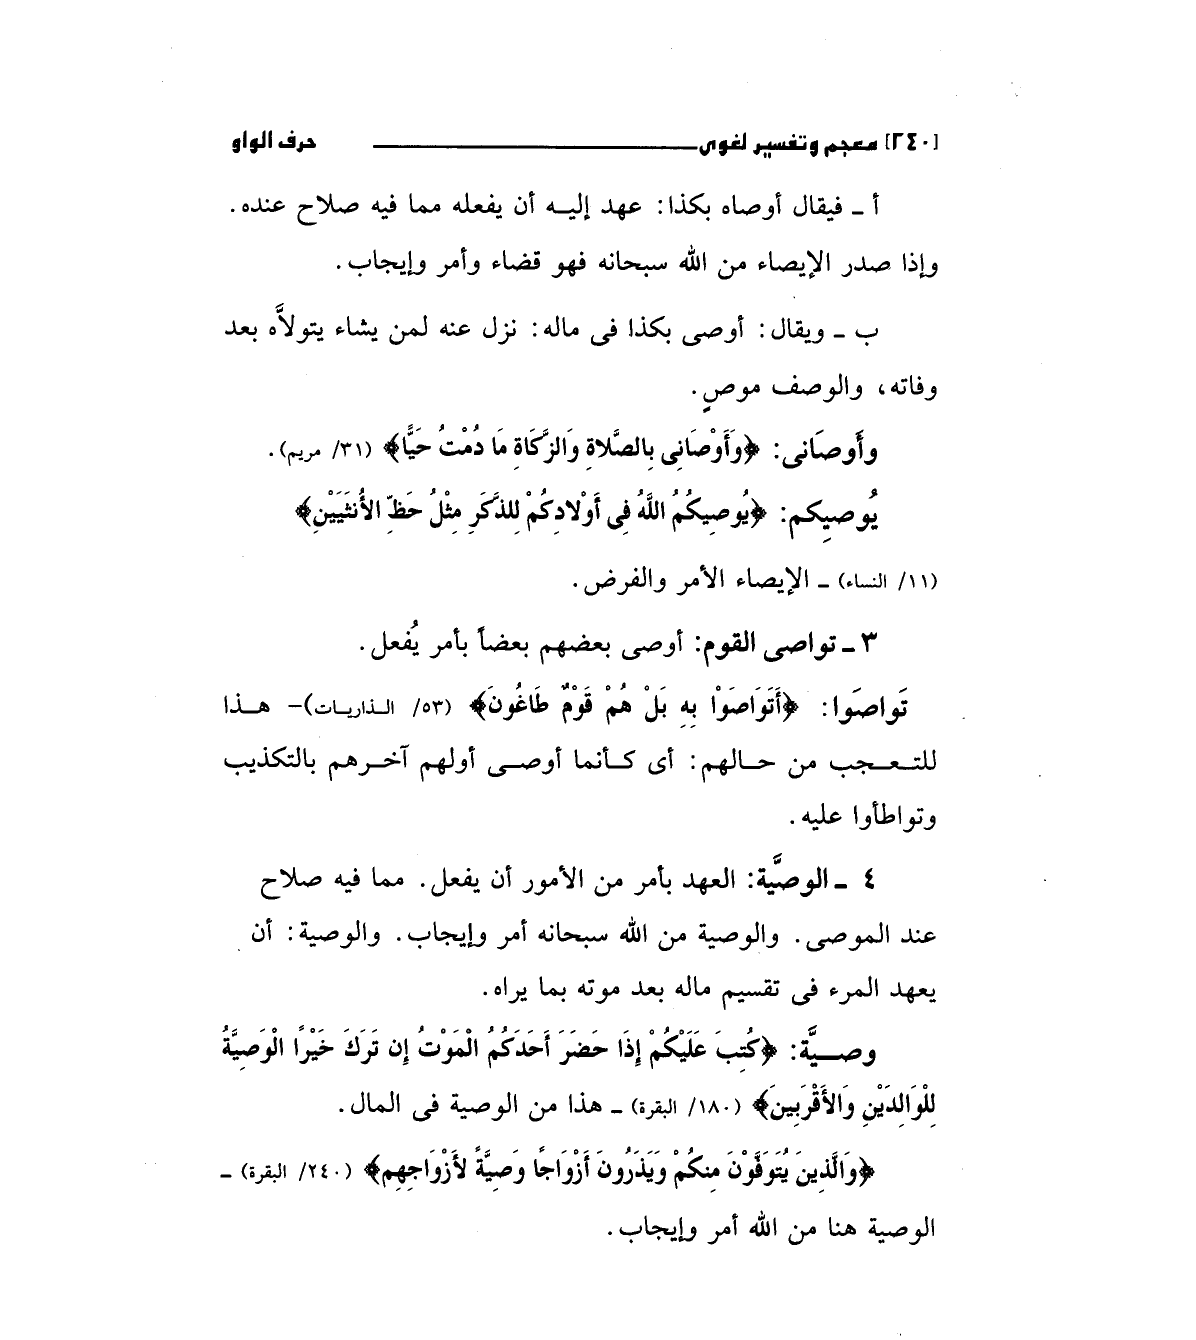 [٢٤٠] معجم وتفسير لغوى حرف الواو
أ ـ فيقال أوصاه بكذا: عهد إليه أن يفعله مما فيه صلاح عنده.
وإذا صدر الإيصاء من الله سبحانه فهو قضاء وأمر وإيجاب.
ب ـ ويقال: أوصى بكذا فى ماله: نزل عنه لمن يشاء يتولاَّه بعد
وفاته، والوصف موصٍ.
وأَوصَانى: ﴿وَأَوْصَانِى بِالصَّلاةِ وَالزَّكَاةِ مَا دُمْتُ حَيًّا﴾ (٣١/ مريم).
يُوصِيكم: ﴿يُوصِيكُمُ اللَّهُ فِى أَوْلادِكُمْ لِلذَّكَرِ مِثْلُ حَظِّ الأُنثَيَيْنِ﴾
(١١/ النساء) ـ الإيصاء الأمر والفرض.
٣ ـ تواصى القوم: أوصى بعضهم بعضاً بأمر يُفعل.
تَواصَوا: ﴿أَتَوَاصَوْا بِهِ بَلْ هُمْ قَوْمٌ طَاغُونَ﴾ (٥٣/ الذاريات)ـ هذا
للتعجب من حالهم: أى كأنما أوصى أولهم آخرهم بالتكذيب
وتواطأوا عليه.
٤ ـ الوصيَّة: العهد بأمر من الأمور أن يفعل. مما فيه صلاح
عند الموصى. والوصية من الله سبحانه أمر وإيجاب. والوصية: أن
يعهد المرء فى تقسيم ماله بعد موته بما يراه.
وصيَّة: ﴿كُتِبَ عَلَيْكُمْ إِذَا حَضَرَ أَحَدَكُمُ الْمَوْتُ إِن تَرَكَ خَيْرًا الْوَصِيَّةُ
لِلْوَالِدَيْنِ وَالأَقْرَبِينَ﴾ (١٨٠/ البقرة) ـ هذا من الوصية فى المال.
﴿وَالَّذِينَ يُتَوَفَّوْنَ مِنكُمْ وَيَذَرُونَ أَزْوَاجًا وَصِيَّةً لأَزْوَاجِهِم﴾ (٢٤٠/ البقرة) ـ
الوصية هنا من الله أمر وإيجاب.